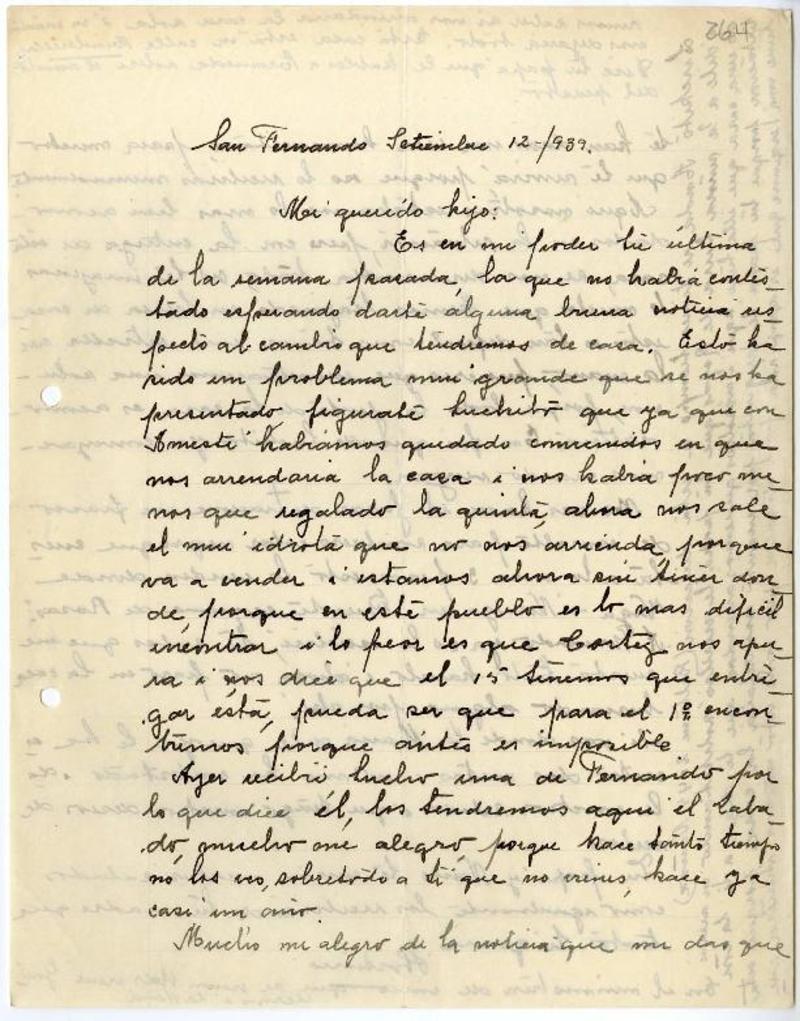 264
San Fernando Setiembre 12-/939.
Mi querido hijo:
Es en mi poder tu última
de la semana pasada, la que no habia contes-
tado esperando darte alguna buena noticia res-
pecto al cambio que tendremos de casa. Esto ha
sido un problema mui grande que se nos ha
presentado, figurate Luchito que ya que con
Amesti habiamos quedado convenidos en que
nos arrendaria la casa i nos habia poco me-
nos que regalado la quinta, ahora nos sale
el mui idiota que no nos arrienda, porque
va a vender i estamos ahora sin tener don-
de, porque en este pueblo es lo mas dificil
encontrar i lo peor es que Cortez nos apu-
ra i nos dice que el 15 tenemos que entre-
gar ésta, pueda ser que para el 1º encon-
tremos porque antes es imposible
Ayer recibió Lucho una de Fernando por
lo que dice él, los tendremos aqui el saba-
do, mucho me alegro, porque hace tanto tiempo
no los veo, sobretodo a ti que no vienes, hace ya
casi un año.
Mucho me alegro de la noticia que me das que